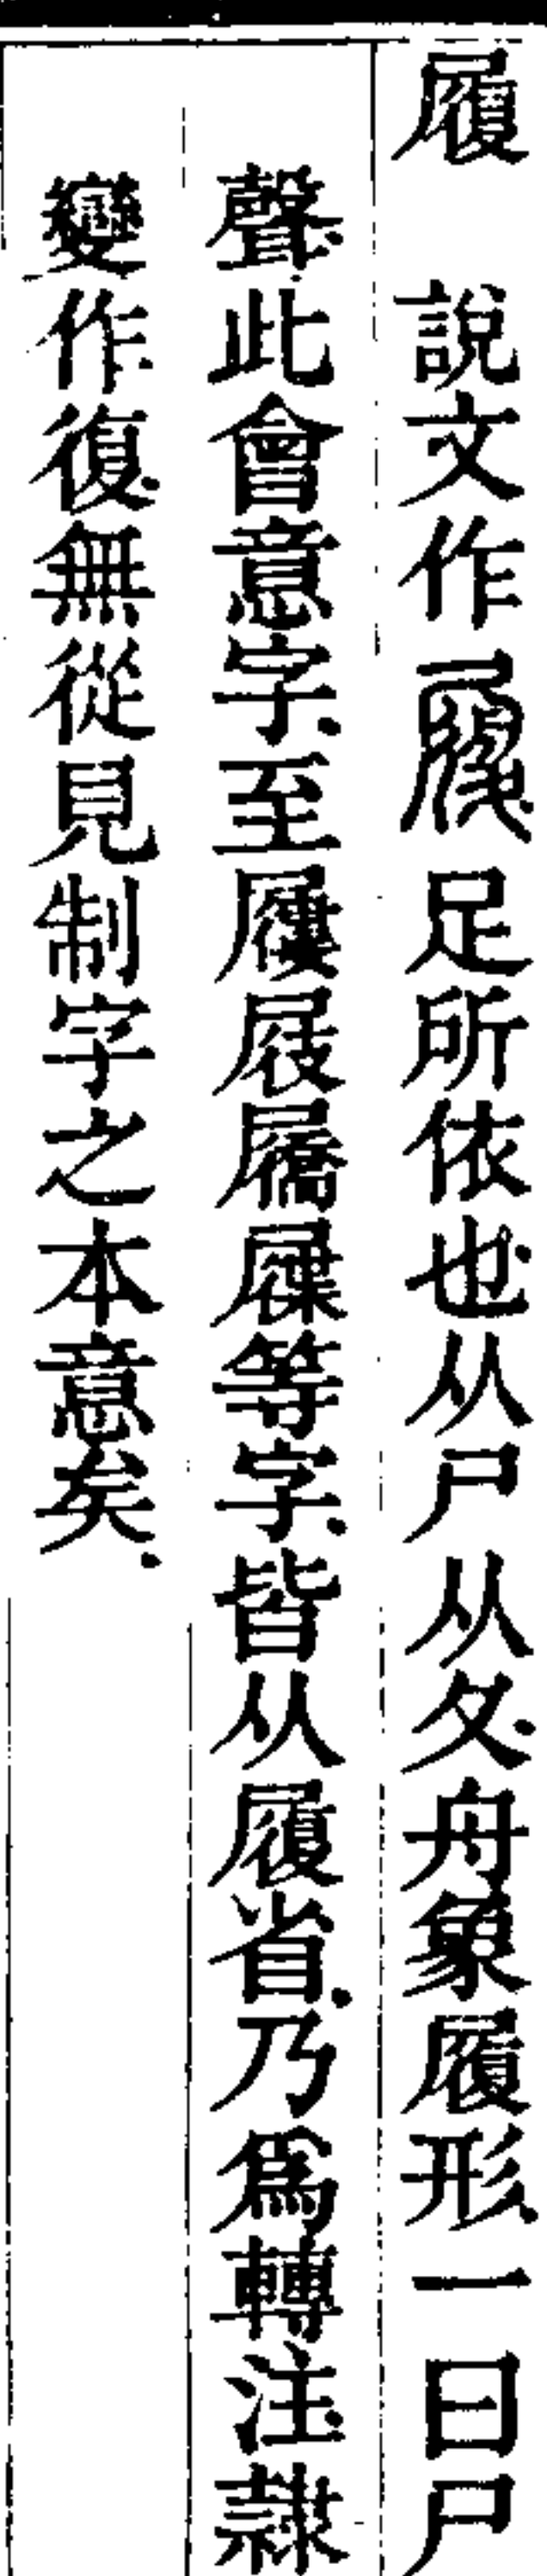 履 說文作𡳐足所依也从尸从夂舟象履形一曰尸
聲此會意字至屨屐屩屧等字皆从履省乃爲轉注隸
變作復無從見制字之本意矣